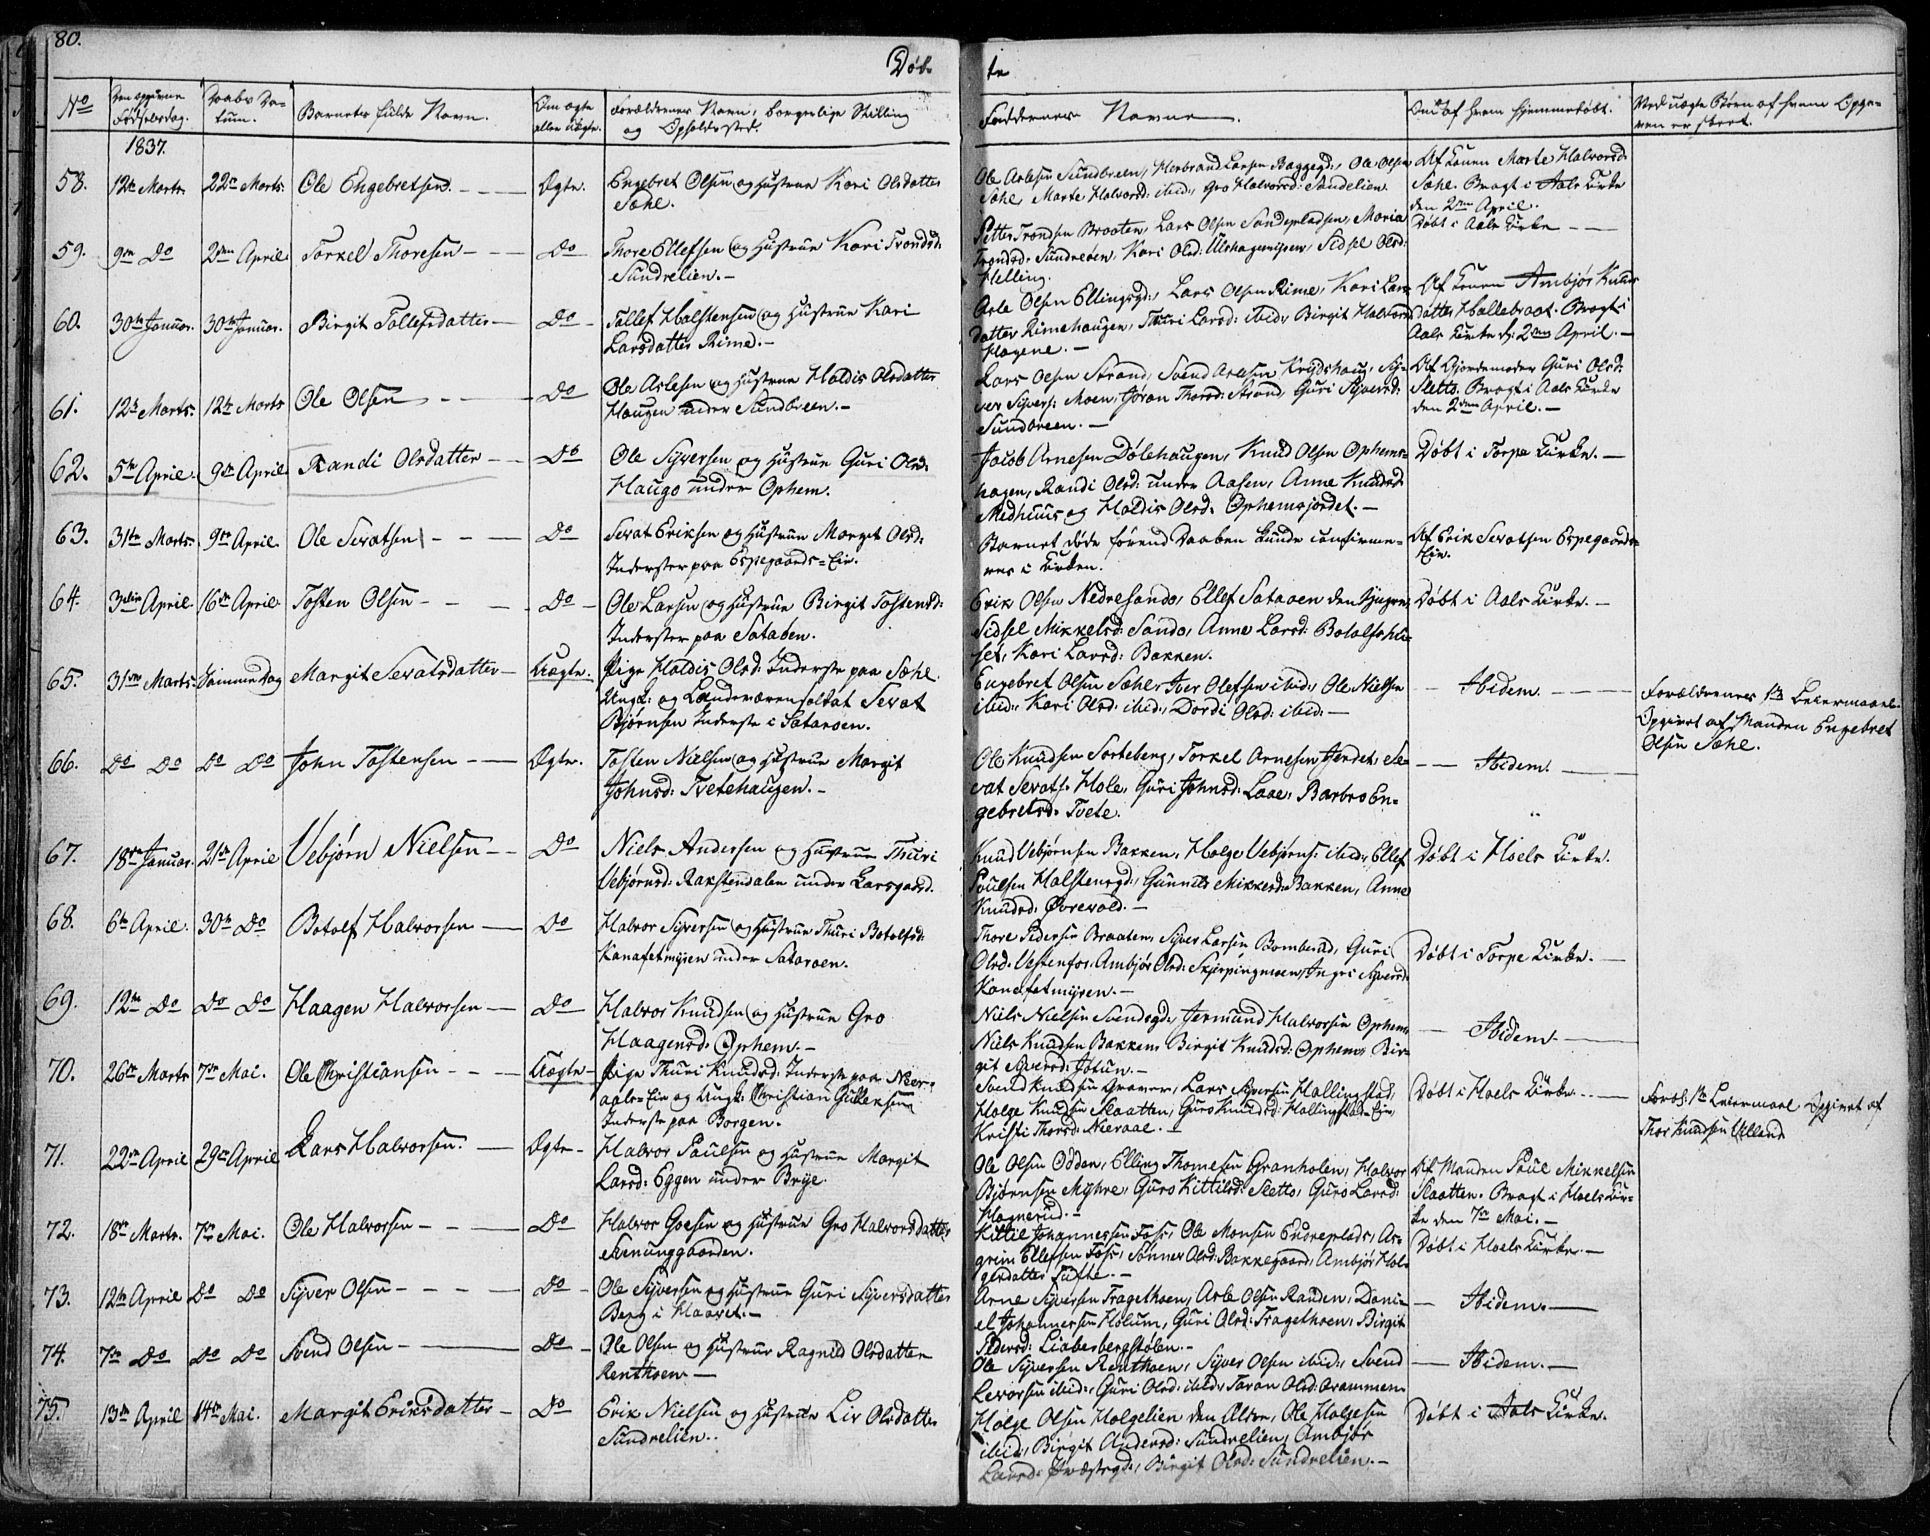 80.
Døb-
te
No
Den opgivne
Fødselsdag.
Daabs Da-
tum.
Barnets fulde Navn.
Om ægte
eller uægte.
Forældrenes Navn, borgerlige Stilling
og Opholdssted.
Faddernes Navne
Om af hvem hjemmedøbt.
Ved uægte Børn af hvem Opga-
ven er skeet.
1837.
58. 12te Marts. 22de Marts. Ole Engebretsen. Ægte. Engebret Olsen og Hustrue Kari Olsdatter
Sæhl.
Ole Aslesen Sundbreen, Herbrand Larsen Baggegd:, Ole Olsen
Sæhl, Marte Halvorsd: ibid:, Gro Halvorsd: Sundrelien.
Af Konen Marte Halvorsd:
Sæhl. Bragt i Aals Kirke
den 2den April.
59. 9de Do 2den April. Torkel Thoresen Do Thore Ellefsen og Hustrue Kari Trondsd:
Sundrelien.
Petter Trondsen Braaten, Lars Olsen Sundrepladsen, Maria
Trondsd: Sundreøen, Kari Olsd: Ulshagemyren, Sidsel Olsd:
Helling.
Døbt i Aals Kirke
60. 30te Januar. 30te Januar. Birgit Tollefsdatter Do Tollef Halstensen og Hustrue Kari
Larsdatter Rime.
Asle Olsen Ellingsgd:, Lars Olsen Rime, Kari Lars-
datter Rimehaugen, Thuri Larsd: ibid:, Birgit Halvorsd:
Hagene.
Af Konen Ambjør Knuds-
datter Hallebraat. Bragt i
Aals Kirke d: 2den April.
61. 12te Marts. 12te Marts Ole Olsen Do Ole Aslesen og Hustrue Haldis Olsdatter
Haugen under Sundbreen.
Lars Olsen Strand, Svend Aslesen Krydshaug, Sy-
ver Syvers: Moen, Jøran Thorsd: Strand, Guri Syversd:
Sundbreen.
Af Gjordemoder Guri Olsd:
Sletto. Bragt i Aals Kirke
den 2den April.
62. 5te April. 9de April. Randi Olsdatter Do Ole Syversen og Hustrue Guri Olsd:
Haugo under Ophem.
Jacob Arnesen Dølehaugen, Knud Olsen Ophems-
hagen, Randi Olsd: under Aasen, Anne Knudsd:
Medhuus og Haldis Olsd: Ophemsjordet.
Døbt i Torpe Kirke.
63. 31te Marts. 9de April. Ole Sevatsen Do Sevat Eriksen og Hustrue Marget Olsd:
Inderster paa Espegaards-Eie.
Barnet døde førend Daaben kunde confirme-
res i Kirken.
Af Erik Sevatsen Espegaards-
Eie.
64. 3die April. 16de April. Tosten Olsen Do Ole Larsen og Hustrue Birgit Tostensd:
Inderster paa Sataøen.
Erik Olsen Nedresando, Ellef Sataøen den Yngre,
Sidsel Mikkelsd: Sando, Anne Larsd: Botolfshu-
set, Kari Larsd: Bakken.
Døbt i Aals Kirke.
65. 31te Marts. Samme Dag Margit Sevatsdatter Uægte. Pige Haldis Olsd: Inderste paa Sæhl.
Ungk: og Landeværnsoldat Sevat
Bjørnsen Inderste i Sataroen.
Engebret Olsen Sæhl, Iver Olefsen ibid:, Ole Nielsen
ibid:, Kari Olsd: ibid:, Dordi Olsd: ibid:
Ibidem.
Forældrenes 1ste Leiermaal.
Opgivet af Manden Engebret
Olsen Sæhl.
66. Do Do Do Do John Tostensen Ægte. Tosten Nielsen og Hustrue Margit
Johnsd: Tvetehaugen.
Ole Knudsen Sorteberg, Torkel Arnesen Jordet, Se-
vat Sevats: Hole, Guri Johnsd: Laae, Barbro En-
gebretsd: Tvete.
Ibidem.
67. 18de Januar. 21de April Vebjørn Nielsen Do Niels Andersen og Hustrue Thuri
Vebjørnsd: Rakstendalen under Larsgaard.
Knud Vebjørnsen Bakken, Holge Vebjørns: ibid:, Ellef
Poulsen Halstensgd:, Gunnild Mikkelsd: Bakken, Anne
Knudsd: Øvrevold.
Døbt i Hoels Kirke.
68. 6te April. 30te Do Botolf Halvorsen Do Halvor Syversen og Hustrue Thuri Botolfsd:
Kanafetmyren under Sataroen.
Thore Pedersen Braaten, Syver Larsen Bomberud, Guri
Olsd: Vestenfor, Ambjør Olsd: Skjerpingmoen, Ingri Syversd:
Kanafetmyren.
Døbt i Torpe Kirke.
69. 12te Do Do Do Haagen Halvorsen Do Halvor Knudsen og Hustrue Gro
Haagensd: Ophem.
Niels Nielsen Svendsgd:, Jermund Halvorsen Ophem,
Niels Knudsen Bakken, Birgit Knudsd: Ophem, Bir-
git Syversd: Jøtun.
Ibidem.
70. 26de Marts 7de Mai. Ole Christiansen Uægte Pige Thuri Knudsd: Inderste paa Nier-
aals-Eie og Ungk: Christian Gulleksen
Inderste paa Borgen.
Svend Knudsen Graver, Lars Syversen Hallingstad,
Holge Knudsen Slaatten, Guro Knudsd: Hallingstad-Eie,
Kristi Thorsd: Nieraal.
Døbt i Hoels Kirke.
Foræl: 1ste Leiermaal Opgivet af
Thor Knudsen Ulland
71. 22de April 29de April Lars Halvorsen. Ægte Halvor Paulsen og Hustrue Margit
Larsd: Eggen under Brye.
Ole Olsen Odden, Elling Thomesen Granholen, Halvor
Bjørnsen Myhre, Guro Kittilsd: Sletto, Guro Larsd:
Hagnerud.
Af Manden Paul Mikkelsen
Slaatten. Bragt i Hoels Kir-
ke den 7de Mai.
72. 18de Marts. 7de Mai. Ole Halvorsen Do Halvor Goesen og Hustrue Gro Halvorsdatter
Nunggaarden.
Kittil Johannessen Foss, Ole Monsen Endreplads, As-
grim Ellefsen Foss, Sønnev Olsd: Bakkegaard, Ambjør Hol-
gesdatter Tufte.
Døbt i Hoels Kirke.
73. 12te April Do Do Syver Olsen Do Ole Syversen og Hustrue Guri Syversdatter
Berg i Haavet.
Arne Syversen Tragethoen, Asle Olsen Randen, Dani-
el Johannesen Holum, Guri Olsd: Tragethoen, Birgit
Pedersd: Liaberbergstølen.
Ibidem.
74. 7de Do Do Do Svend Olsen Do Ole Olsen og Hustrue Ragnild Olsdatter
Renthoen
Ole Syversen Renthoen, Syver Olsen ibid:, Svend
Levorsen ibid:, Guri Olsd: ibid:, Taran Olsd: Brammen
Ibidem.
75. 13de April 14de Mai. Margit Eriksdatter Do Erik Nielsen og Hustrue Liv Olsdatter
Sundrelien.
Holge Olsen Holgelien den Ældre, Ole Holgesen
ibid:, Birgit Andersd: Sundrelien, Ambjør
Larsd: Prestegd:, Birgit Olsd: Sundrelien.
Døbt i Aals Kirke.